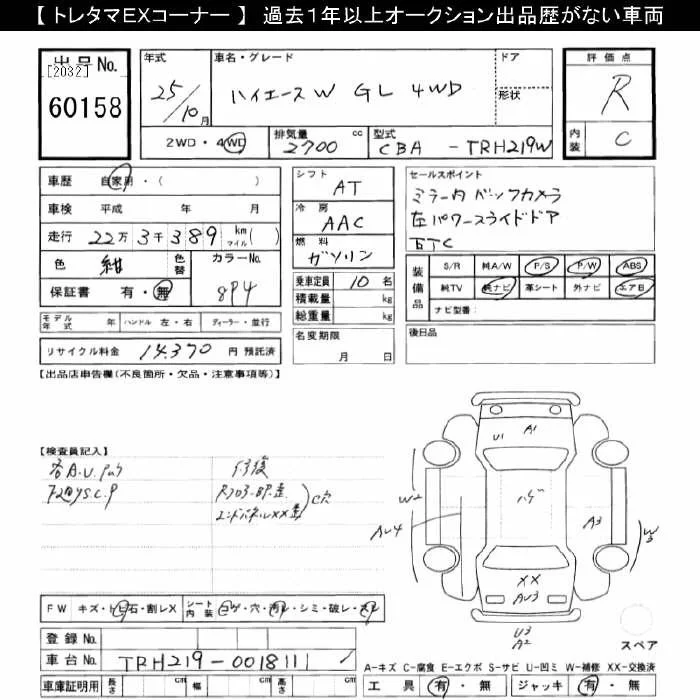 【 トレタマEXコーナー 】 過去1年以上オークション出品歴がない車両
出品No.
[2032]
60158
年式
25/10月
車名・グレード
ハイエースW GL 4WD
ドア
形状
評価点
R
内装
C
2WD・4WD
排気量
2700 cc
型式
CBA - TRH219W
車歴 自家用・( )
車検 平成 年 月
走行 22万3千389 km マイル( )
色 紺 色替 カラーNo.
8P4
保証書 有・無
モデル年式 年 ハンドル 左・右 ディーラー・並行
リサイクル料金 14,370 円 預託済
シフト
AT
冷房
AAC
燃料
ガソリン
乗車定員 10 名
積載量 kg
総重量 kg
名変期限
月 日
セールスポイント
ミラー内バックカメラ
左パワースライドドア
ETC
装備品
S/R 純A/W P/S P/W ABS
純TV 純ナビ 革シート 外ナビ エアB
ナビ型番:
後日品
【出品店申告欄(不良箇所・欠品・注意事項等)】
【検査員記入】
各A.U.
修後
C穴
U1 A1
ハゲ
W2
AU4
A3
W3
XX
AU3
U3
A2
スペア
FW キズ・トビ石・割レX シート内装 コゲ・穴・汚レ・シミ・破レ・スレ
登録No.
車台No. TRH219-0018111
車庫証明用 長さ cm 幅 cm 高さ cm
A-キズ C-腐食 E-エクボ S-サビ U-凹ミ W-補修 XX-交換済
工具 有・無 ジャッキ 有・無